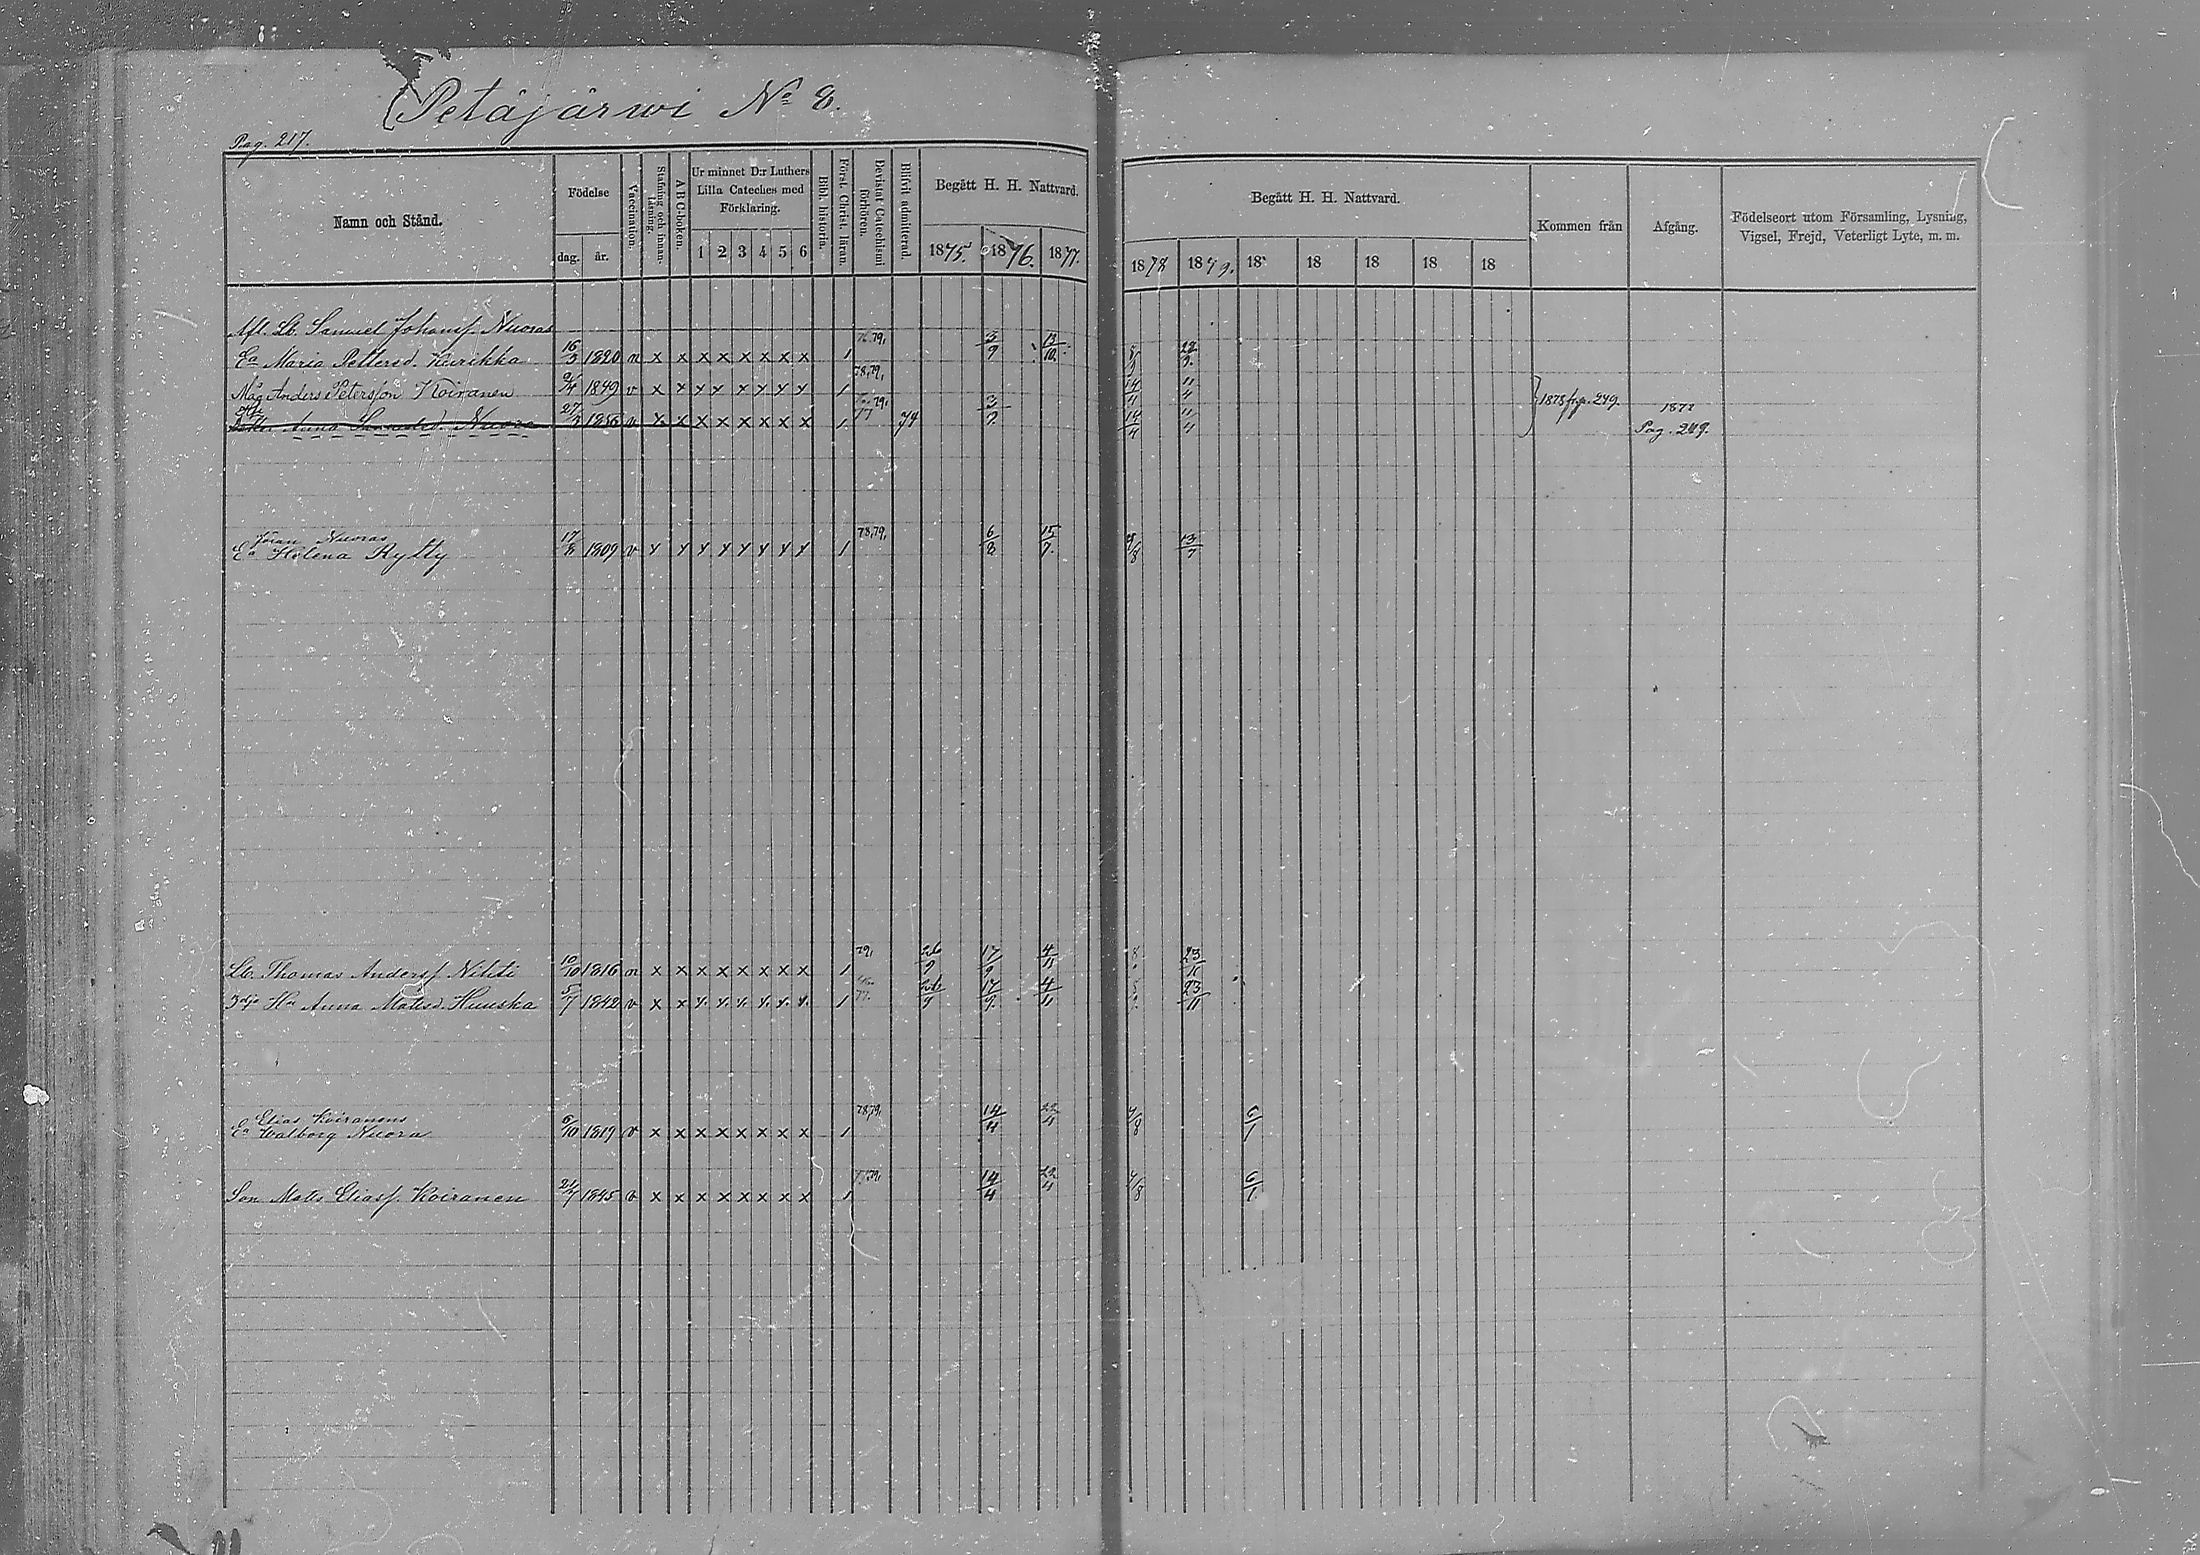 Petäjärwi No 8.
Pag. 217.
Namn och Stånd. Födelse dag. år. Vaccination. Stafning och innanläsning. A B C-boken. Ur minnet D:r Luthers Lilla Cateches med Förklaring. 1 2 3 4 5 6 Bibl. historia. Först. Christ. läran. Bevistat Catechismi förhören. Blifvit admitterad. Begått H. H. Nattvard. 1875. 1876. 1877.
Begått H. H. Nattvard. 1878 1879. 18 18 18 18 18 Kommen från Afgång. Födelseort utom Församling, Lysning, Vigsel, Frejd, Veterligt Lyte, m. m.
Afl. Lb. Samuel Johansf. Nuoras
Ea Maria Pettersd. Kurikka 16/3 1820 n x x x x x x x x 1 76.79, 3/9 13/10. 22/9.
Måg Anders Petersson Koiranen 1849 v x x x x x x x x 1 78,79, 14/4 " 1878 fr. p. 249.
Anna Nuora 27/3 1856 v x x x x x x x x 1 77 74 3/9. 14/4 " 1877 Pag. 249.
Jöran Nuoras
Ea Helena Rytty 17/8 1809 v x x x x x x x x 1 78,79, 6/8 15/7. 13/7
Lb. Thomas Andersf. Nihti 10/10 1816 n x x x x x x x x 1 79, 26/9 17/9 4/11 23/11
3dje Hu Anna Matsd. Huuska 5/7 1842 v x x x x x x x x 1 77. 26/9 17/9. 4/11 23/11
Elias Koiranens
Ea Walborg Nuora 6/10 1819 v x x x x x x x x 1 78,79, 14/4 22/4 4/8 6/1
Son Mats Eliasf. Koiranen 24/7 1845 v x x x x x x x x 1 14/4 22/4 4/8 6/1